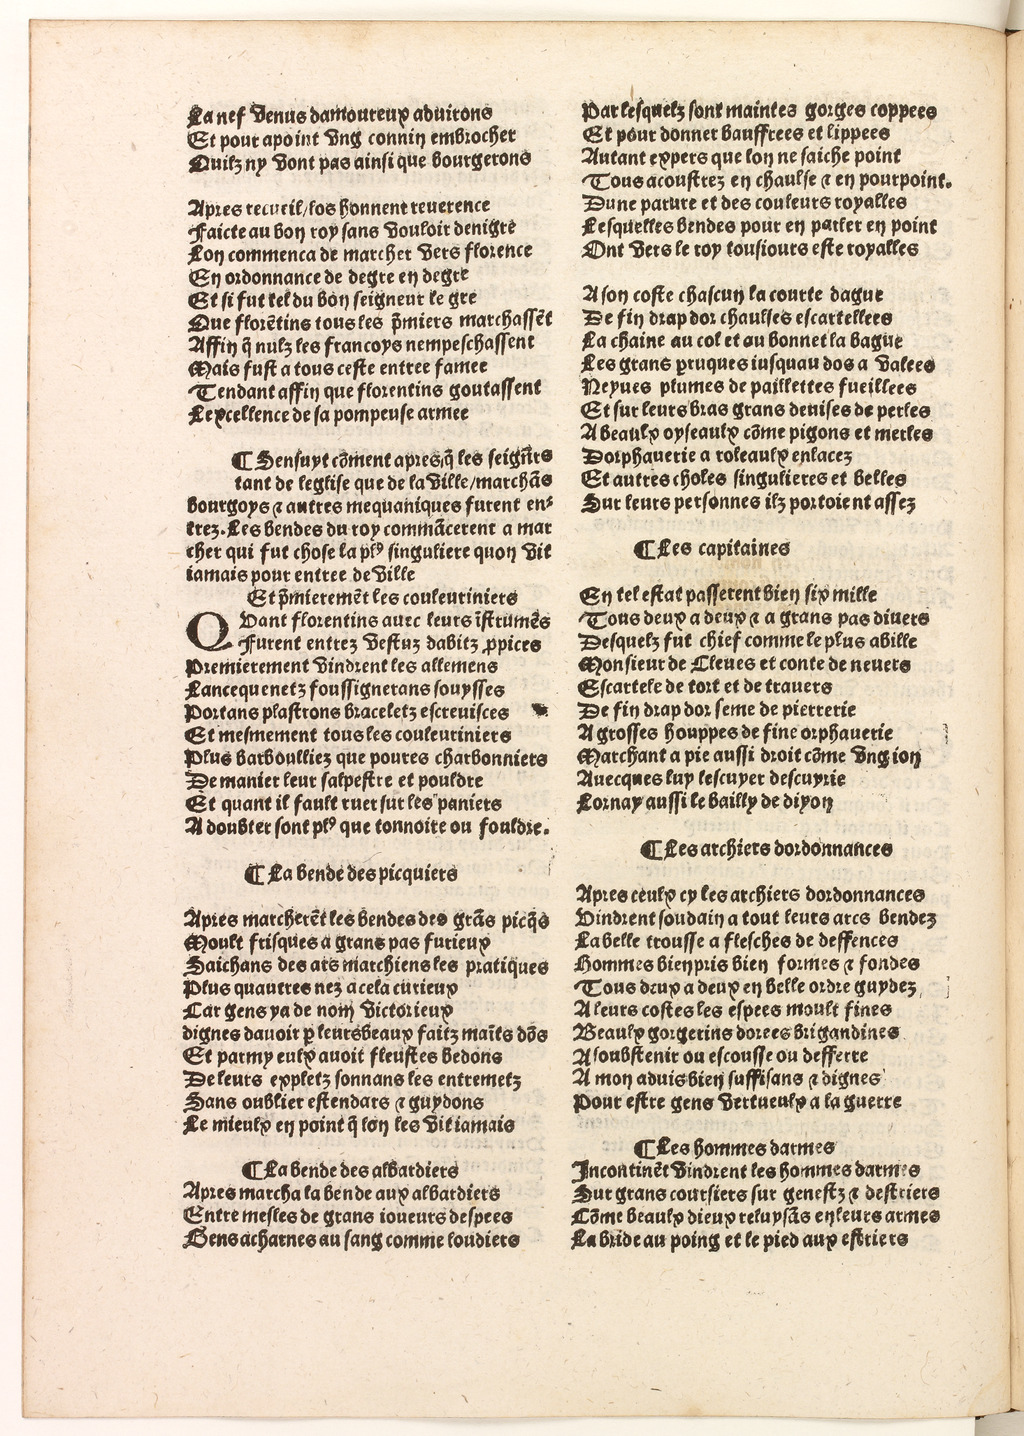 La nef Venus damoureux aduirons
Et pour apoint Vng connin embrocher
Quilz ny Vont pas ainsi que bourgerons
Apres recueil/los honnent reuerence
Faicte au bon roy sans Vouloir denigre
Lon commenca de marcher Vers florence
En ordonnance de degre en degre
Et si fut tel du bon seigneur le gre
Que florẽtins tous les p̃miers marchassẽt
Affin q̃ nulz les francoys nempeschassent
Mais fust a tous ceste entree famee
Tendant affin que florentins goutassent
Lexcellence de sa pompeuse armee
¶ Sensuyt cõment apres q̃ les seigñrs
tant de leglise que de la Ville/marchãs
bourgoys ⁊ autres mequaniques furent en⸗
trez. Les bendes du roy commãcerent a mar
cher qui fut chose la plꝰ singuliere quon Vit
iamais pour entree de Ville
Et p̃mieremẽt les couleuriniers
QVant florentins auec leurs ĩstrumẽs
Furent entrez Vestuz dabitz ꝓpices
Premierement Vindrent les allemens
Lancequenetz foussignerans souysses
Portans plastrons braceletz escreuisces
Et mesmement tous les couleuriniers
Plus barboulliez que poures charbonniers
De manier leur salpestre et pouldre
Et quant il fault ruer sur les paniers
A doubter sont plꝰ que tonnoire ou fouldre.
¶ La bende des picquiers
Apres marcherẽt les bendes des grãs picq̃s
Moult frisques a grans pas furieux
Saichans des ars marchiens les pratiques
Plus quautres nez a cela curieux
Car gens ya de nom Victorieux
dignes dauoir ꝑ leurs beaux faitz maĩts dõs
Et parmy eulx auoit fleustes bedons
De leurs expletz sonnans les entremetz
Sans oublier estendars ⁊ guydons
Le mieulx en point q̃ lon les Vit iamais
¶ La bende des albardiers
Apres marcha la bende aux albardiers
Entre mesles de grans ioueurs despees
Gens acharnes au sang comme loudiers
Par lesquelz sont maintes gorges coppees
Et pour donner bauffrees et lippees
Autant expers que lon ne saiche point
Tous acoustrez en chaulse ⁊ en pourpoint.
Dune parure et des couleurs royalles
Lesquelles bendes pour en parler en point
Ont Vers le roy tousiours este royalles
A son coste chascun la courte dague
De fin drap dor chaulses escartellees
La chaine au col et au bonnet la bague
Les grans ꝑruques iusquau dos a Valees
Neyues plumes de paillettes fueillees
Et sur leurs bras grans deuises de perles
A beaulx oyseaulx cõme pigons et merles
Dorphauerie a roleaulx enlacez
Et autres choses singulieres et belles
Sur leurs personnes ilz portoient assez
¶ Les capitaines
En tel estat passerent bien six mille
Tous deux a deux ⁊ a grans pas diuers
Desquelz fut chief comme le plus abille
Monsieur de Cleues et conte de neuers
Escartele de tort et de trauers
De fin drap dor seme de pierrerie
A grosses houppes de fine orphauerie
Marchant a pie aussi droit cõme Vng ion
Auecques luy lescuyer descuyrie
Lornay aussi le bailly de diyon
¶ Les archiers dordonnances
Apres ceulx cy les archiers dordonnances
Vindrent soudain a tout leurs arcs bendez
La belle trousse a flesches de deffences
Hommes bien pris bien formes ⁊ fondes
Tous deux a deux en belle ordre guydez
A leurs costes les espees moult fines
Beaulx gorgerins dorees brigandines
A soubstenir ou escousse ou defferre
A mon aduis bien suffisans ⁊ dignes
Pour estre gens Vertueulx a la guerre
¶ Les hommes darmes
Incontinẽt Vindrent les hommes darmes
Sur grans coursiers sur genestz ⁊ destriers
Cõme beaulx dieux reluysãs en leurs armes
La bride au poing et le pied aux estriers